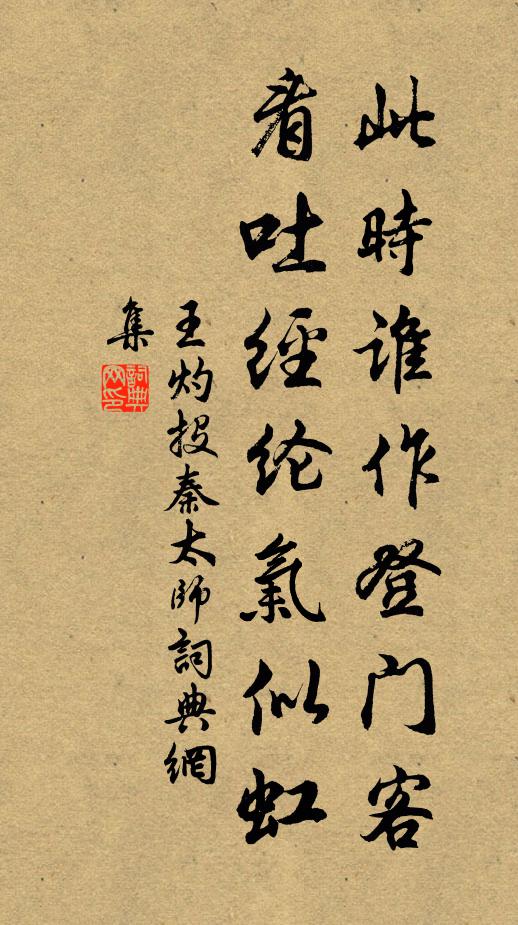 此時誰作登门客
看吐經纶氣似虹
王灼投秦太師詞典網
集
詞典網印